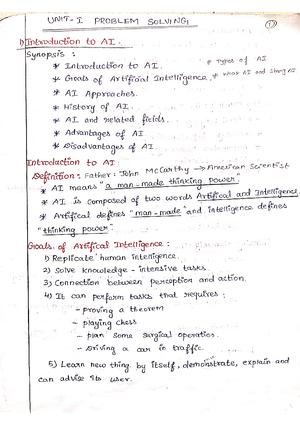 UNIT-I PROBLEM SOLVING
1
1) Introduction to AI.
Synopsis :
* Introduction to AI. * Types of AI
* Goals of Artifical Intelligence. * Weak AI and Strong AI
* AI Approaches.
* History of AI.
* AI and related fields.
* Advantages of AI.
* Disadvantages of AI.
Introduction to AI:
Definition : Father: John McCarthy → American Scientist
* AI means "a man-made thinking power".
* AI is composed of two words Artifical and Intelligence.
* Artifical defines "man-made" and intelligence defines
"thinking power".
Goals of Artifical Intelligence :
1) Replicate human intelligence.
2) Solve knowledge-intensive tasks.
3) Connection between perception and action.
4) It can perform tasks that requires :
- proving a theorem
- playing chess
- plan some surgical operation.
- driving a car in traffic
5) Learn new thing by itself, demonstrate, explain and
can advise its user.